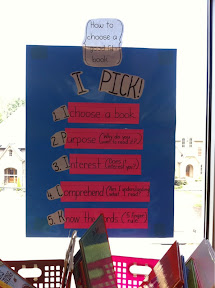 How to
choose a
good fit
book
I PICK!
1. I choose a book.
2. Purpose (Why do you want to read it?)
3. Interest (Does it interest you?)
4. Comprehend (Am I understanding what I read?)
5. Know the words (5 finger rule)